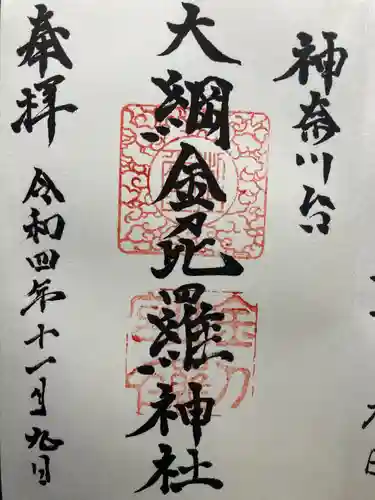 神奈川台
大綱金毘羅神社
奉拝
令和四年十一月九日